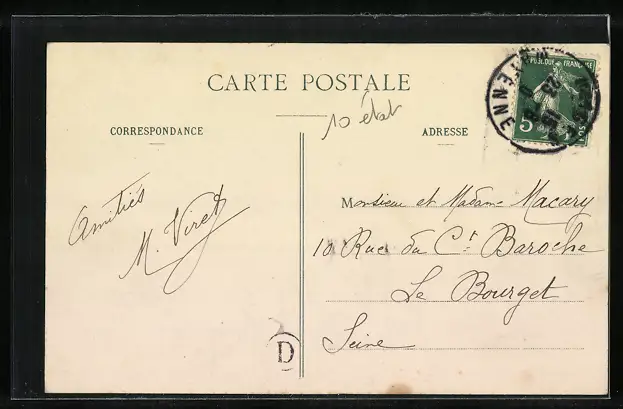 CARTE POSTALE
10 état
CORRESPONDANCE
ADRESSE
RÉPUBLIQUE FRANÇAISE
5
POSTES
ENNE
Amitiés
M. Viret
Monsieur et Madame Macary
10 Rue du Ct Baroche
Le Bourget
Seine
D